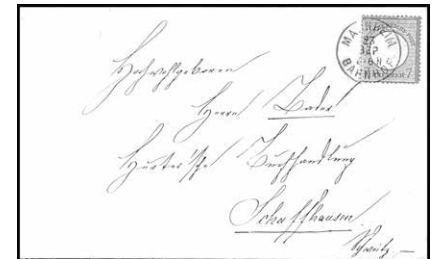 MANNHEIM
23
SEP
BAHNHOF
7
Hochwohlgeboren
Herrn Bader
Hurter'sche Buchhandlung
Schaffhausen
Schweiz